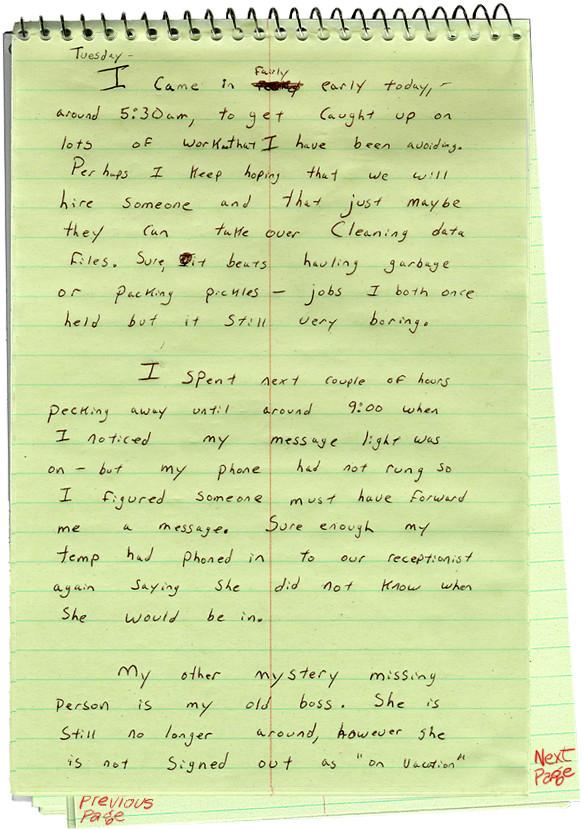 Tuesday -
Fairly
I came in early today, -
around 5:30am, to get caught up on
lots of work that I have been avoiding.
Perhaps I keep hoping that we will
hire someone and that just maybe
they can take over cleaning data
files. Sure, it beats hauling garbage
or packing pickles - jobs I both once
held but it still very boring.
I spent next couple of hours
pecking away until around 9:00 when
I noticed my message light was
on - but my phone had not rung so
I figured someone must have forward
me a message. Sure enough my
temp had phoned in to our receptionist
again saying she did not know when
she would be in.
My other mystery missing
person is my old boss. She is
still no longer around, however she
is not signed out as "on vacation"
Next
Page
Previous
Page